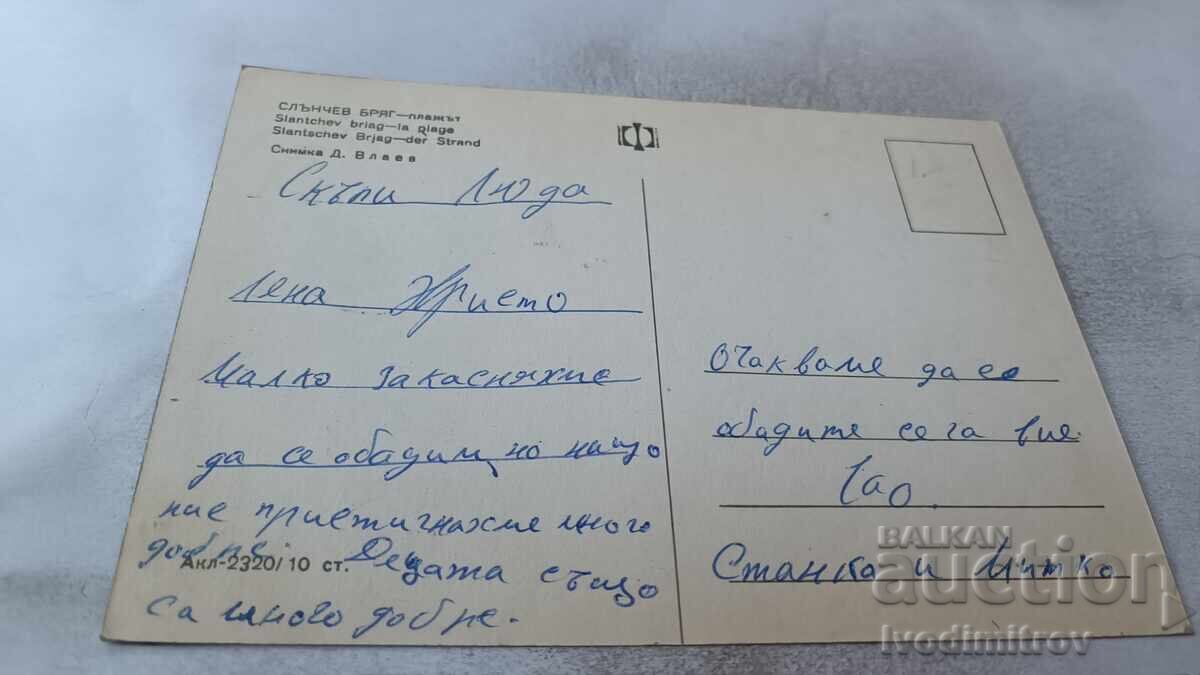 СЛЪНЧЕВ БРЯГ—плажът
Slantchev briag—la plage
Slantschev Brjag—der Strand
Снимка Д. Влаев
Скъпи Люда
Лена Христо
Малко закасняхме
да се обадим, но нищо
ние пристигнахме много
добре. Децата също
са много добре.
Акл-2320/10 ст.
Очакваме да се
обадите сега вие.
Чао.
Станка и Митко
BALKAN
auction
Ivodimitrov